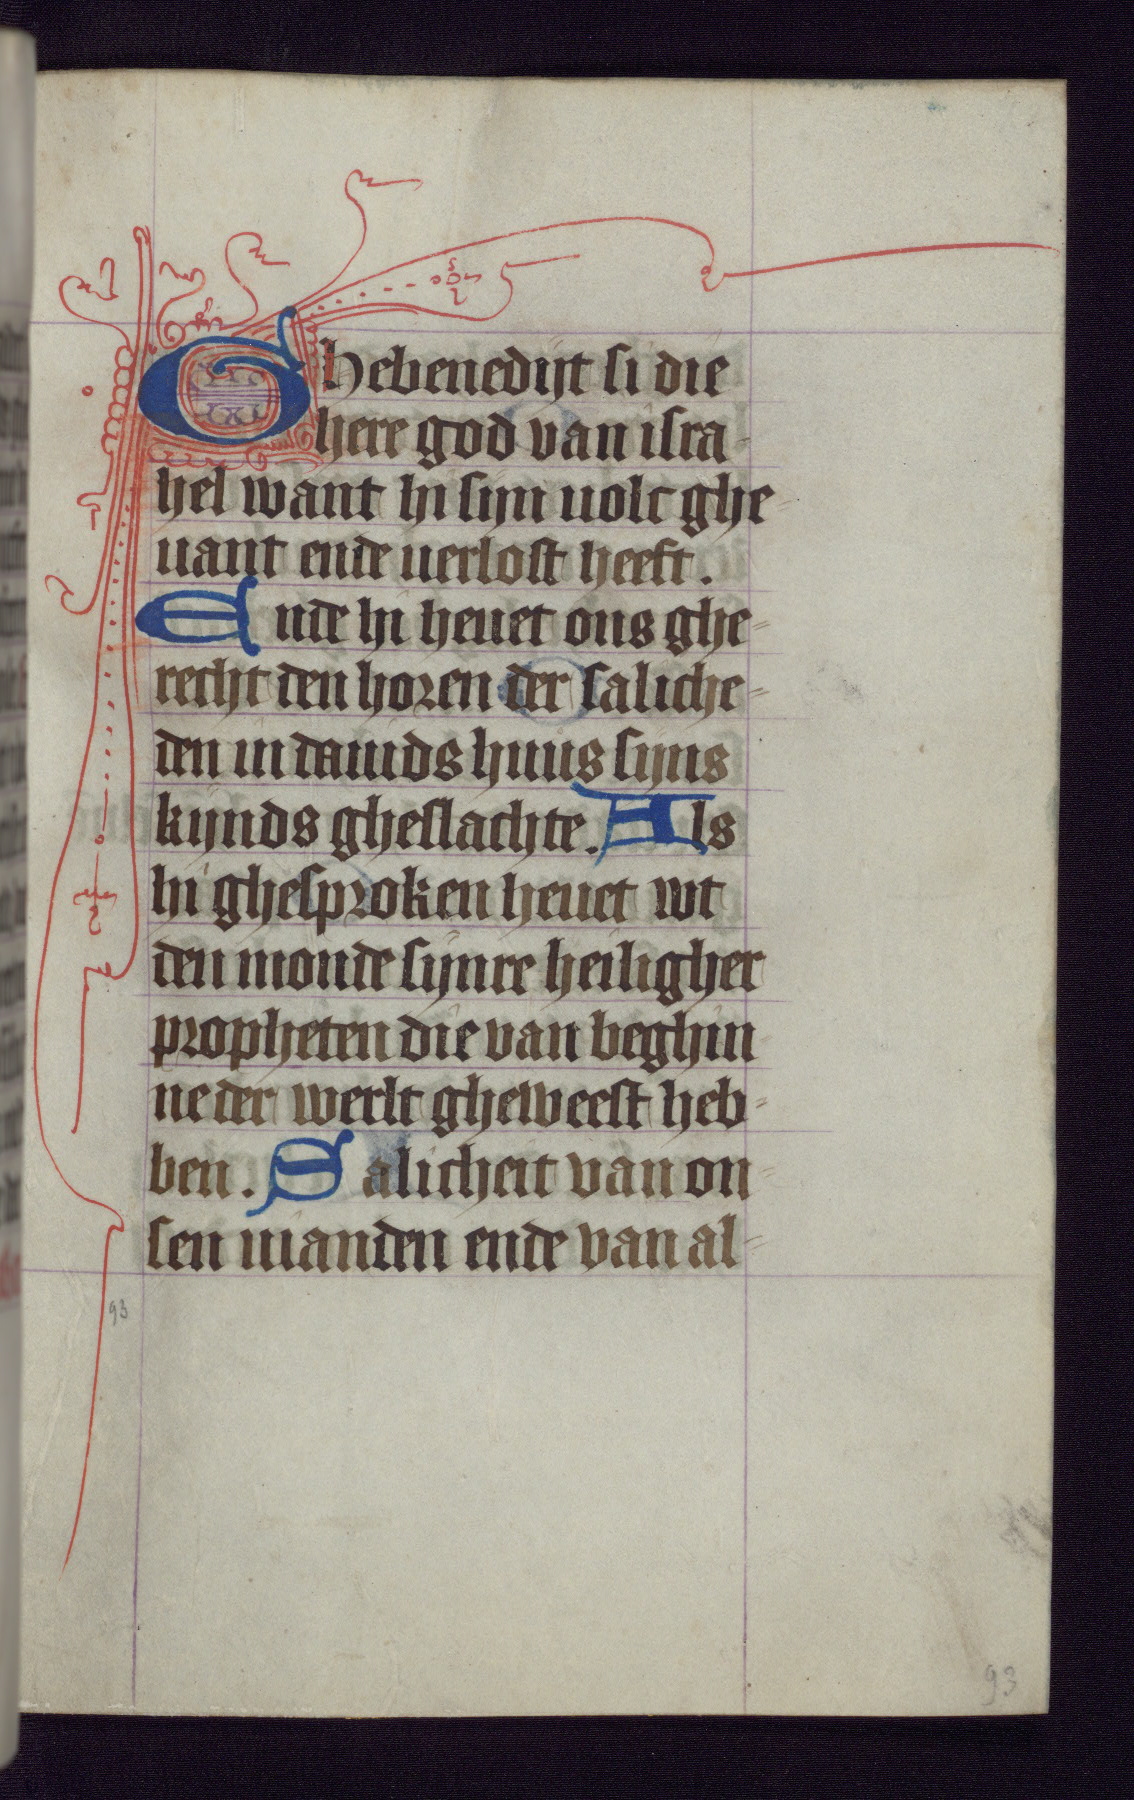 Ghebenedijt si die
here god van isra-
hel want hi sijn uolc ghe-
uant ende uerlost heeft.
Ende hi heuet ons ghe-
recht den horen der saliche-
den in dauids huus sijns
kijnds gheslachte. Als
hi ghesproken heuet wt
den monde sijnre heiligher
propheten die van beghin-
ne der werlt gheweest heb-
ben. Salicheit van on-
sen uianden ende van al-
93
93